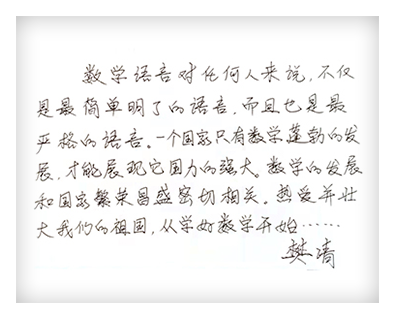 数学语言对任何人来说，不仅
是最简单明了的语言，而且也是最
严格的语言。一个国家只有数学蓬勃的发
展，才能展现它国力的强大。数学的发展
和国家繁荣昌盛密切相关。热爱并壮
大我们的祖国，从学好数学开始……
樊清